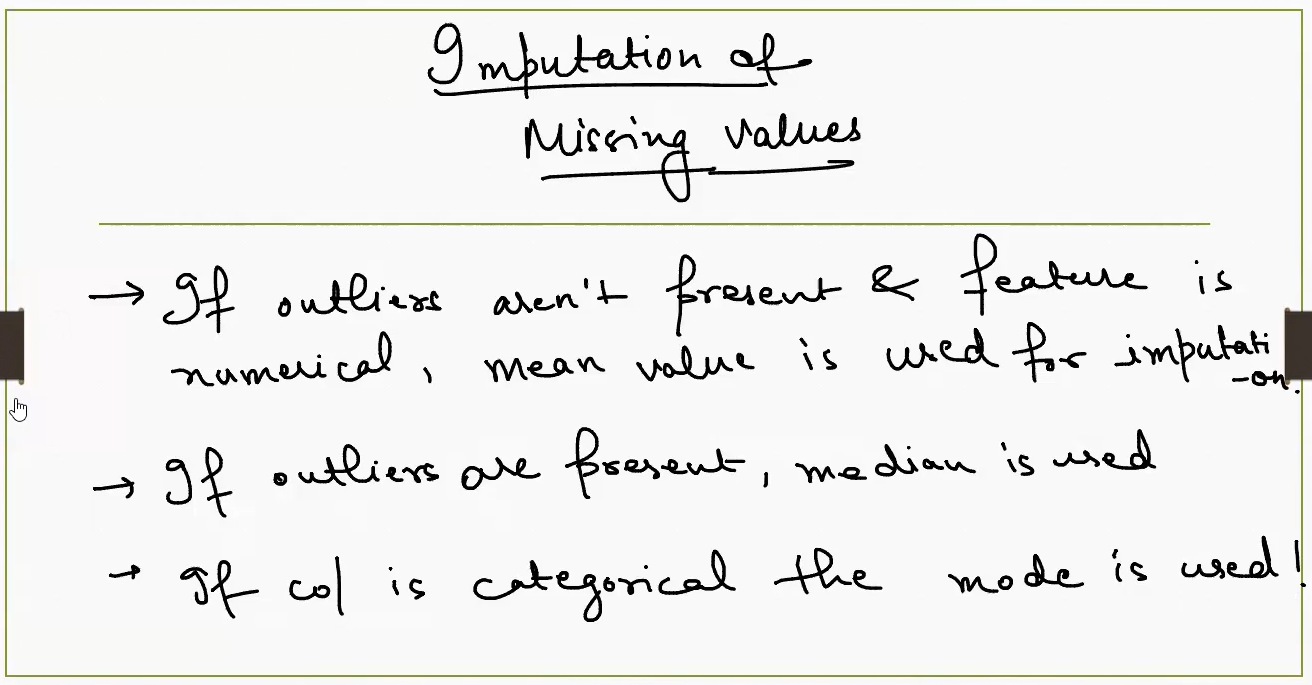 Imputation of
Missing Values
→ If outliers aren't present & feature is
numerical, mean value is used for imputati
-on.
→ If outliers are present, median is used
→ If col is categorical the mode is used!